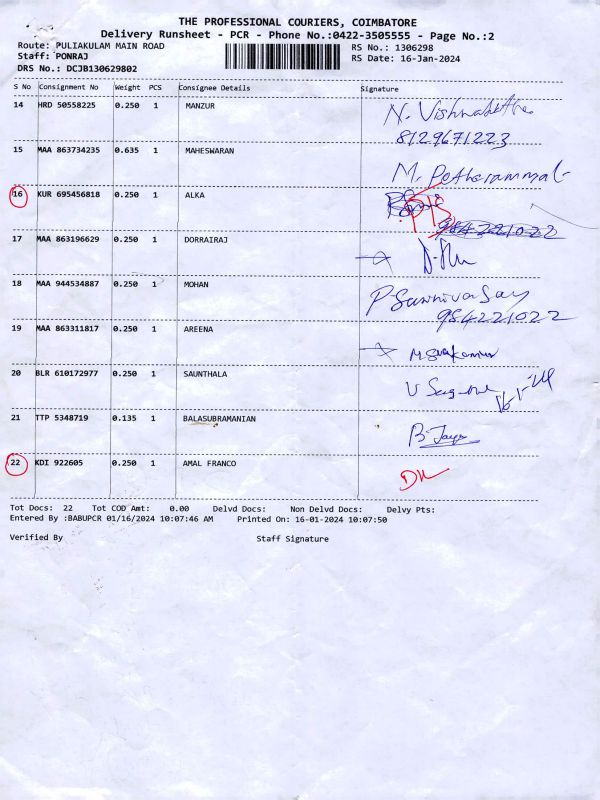 THE PROFESSIONAL COURIERS, COIMBATORE
Delivery Runsheet - PCR - Phone No.:0422-3505555 - Page No.:2
Route: PULIAKULAM MAIN ROAD RS No.: 1306298
Staff: PONRAJ RS Date: 16-Jan-2024
DRS No.: DCJB130629802
S No Consignment No Weight PCS Consignee Details Signature
14 HRD 50558225 0.250 1 MANZUR N.
8129671223
15 MAA 863734235 0.635 1 MAHESWARAN M.
16 KUR 695456818 0.250 1 ALKA
9842221022
17 MAA 863196629 0.250 1 DORRAIRAJ
18 MAA 944534887 0.250 1 MOHAN P
984221022
19 MAA 863311817 0.250 1 AREENA
20 BLR 610172977 0.250 1 SAUNTHALA
21 TTP 5348719 0.135 1 BALASUBRAMANIAN
22 KDI 922605 0.250 1 AMAL FRANCO
Tot Docs: 22 Tot COD Amt: 0.00 Delvd Docs: Non Delvd Docs: Delvy Pts:
Entered By :BABUPCR 01/16/2024 10:07:46 AM Printed On: 16-01-2024 10:07:50
Verified By Staff Signature